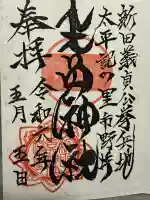 新田義貞公挙兵地
太平記の里 市野井
生品神社
奉拝
令和六年
五月
五日